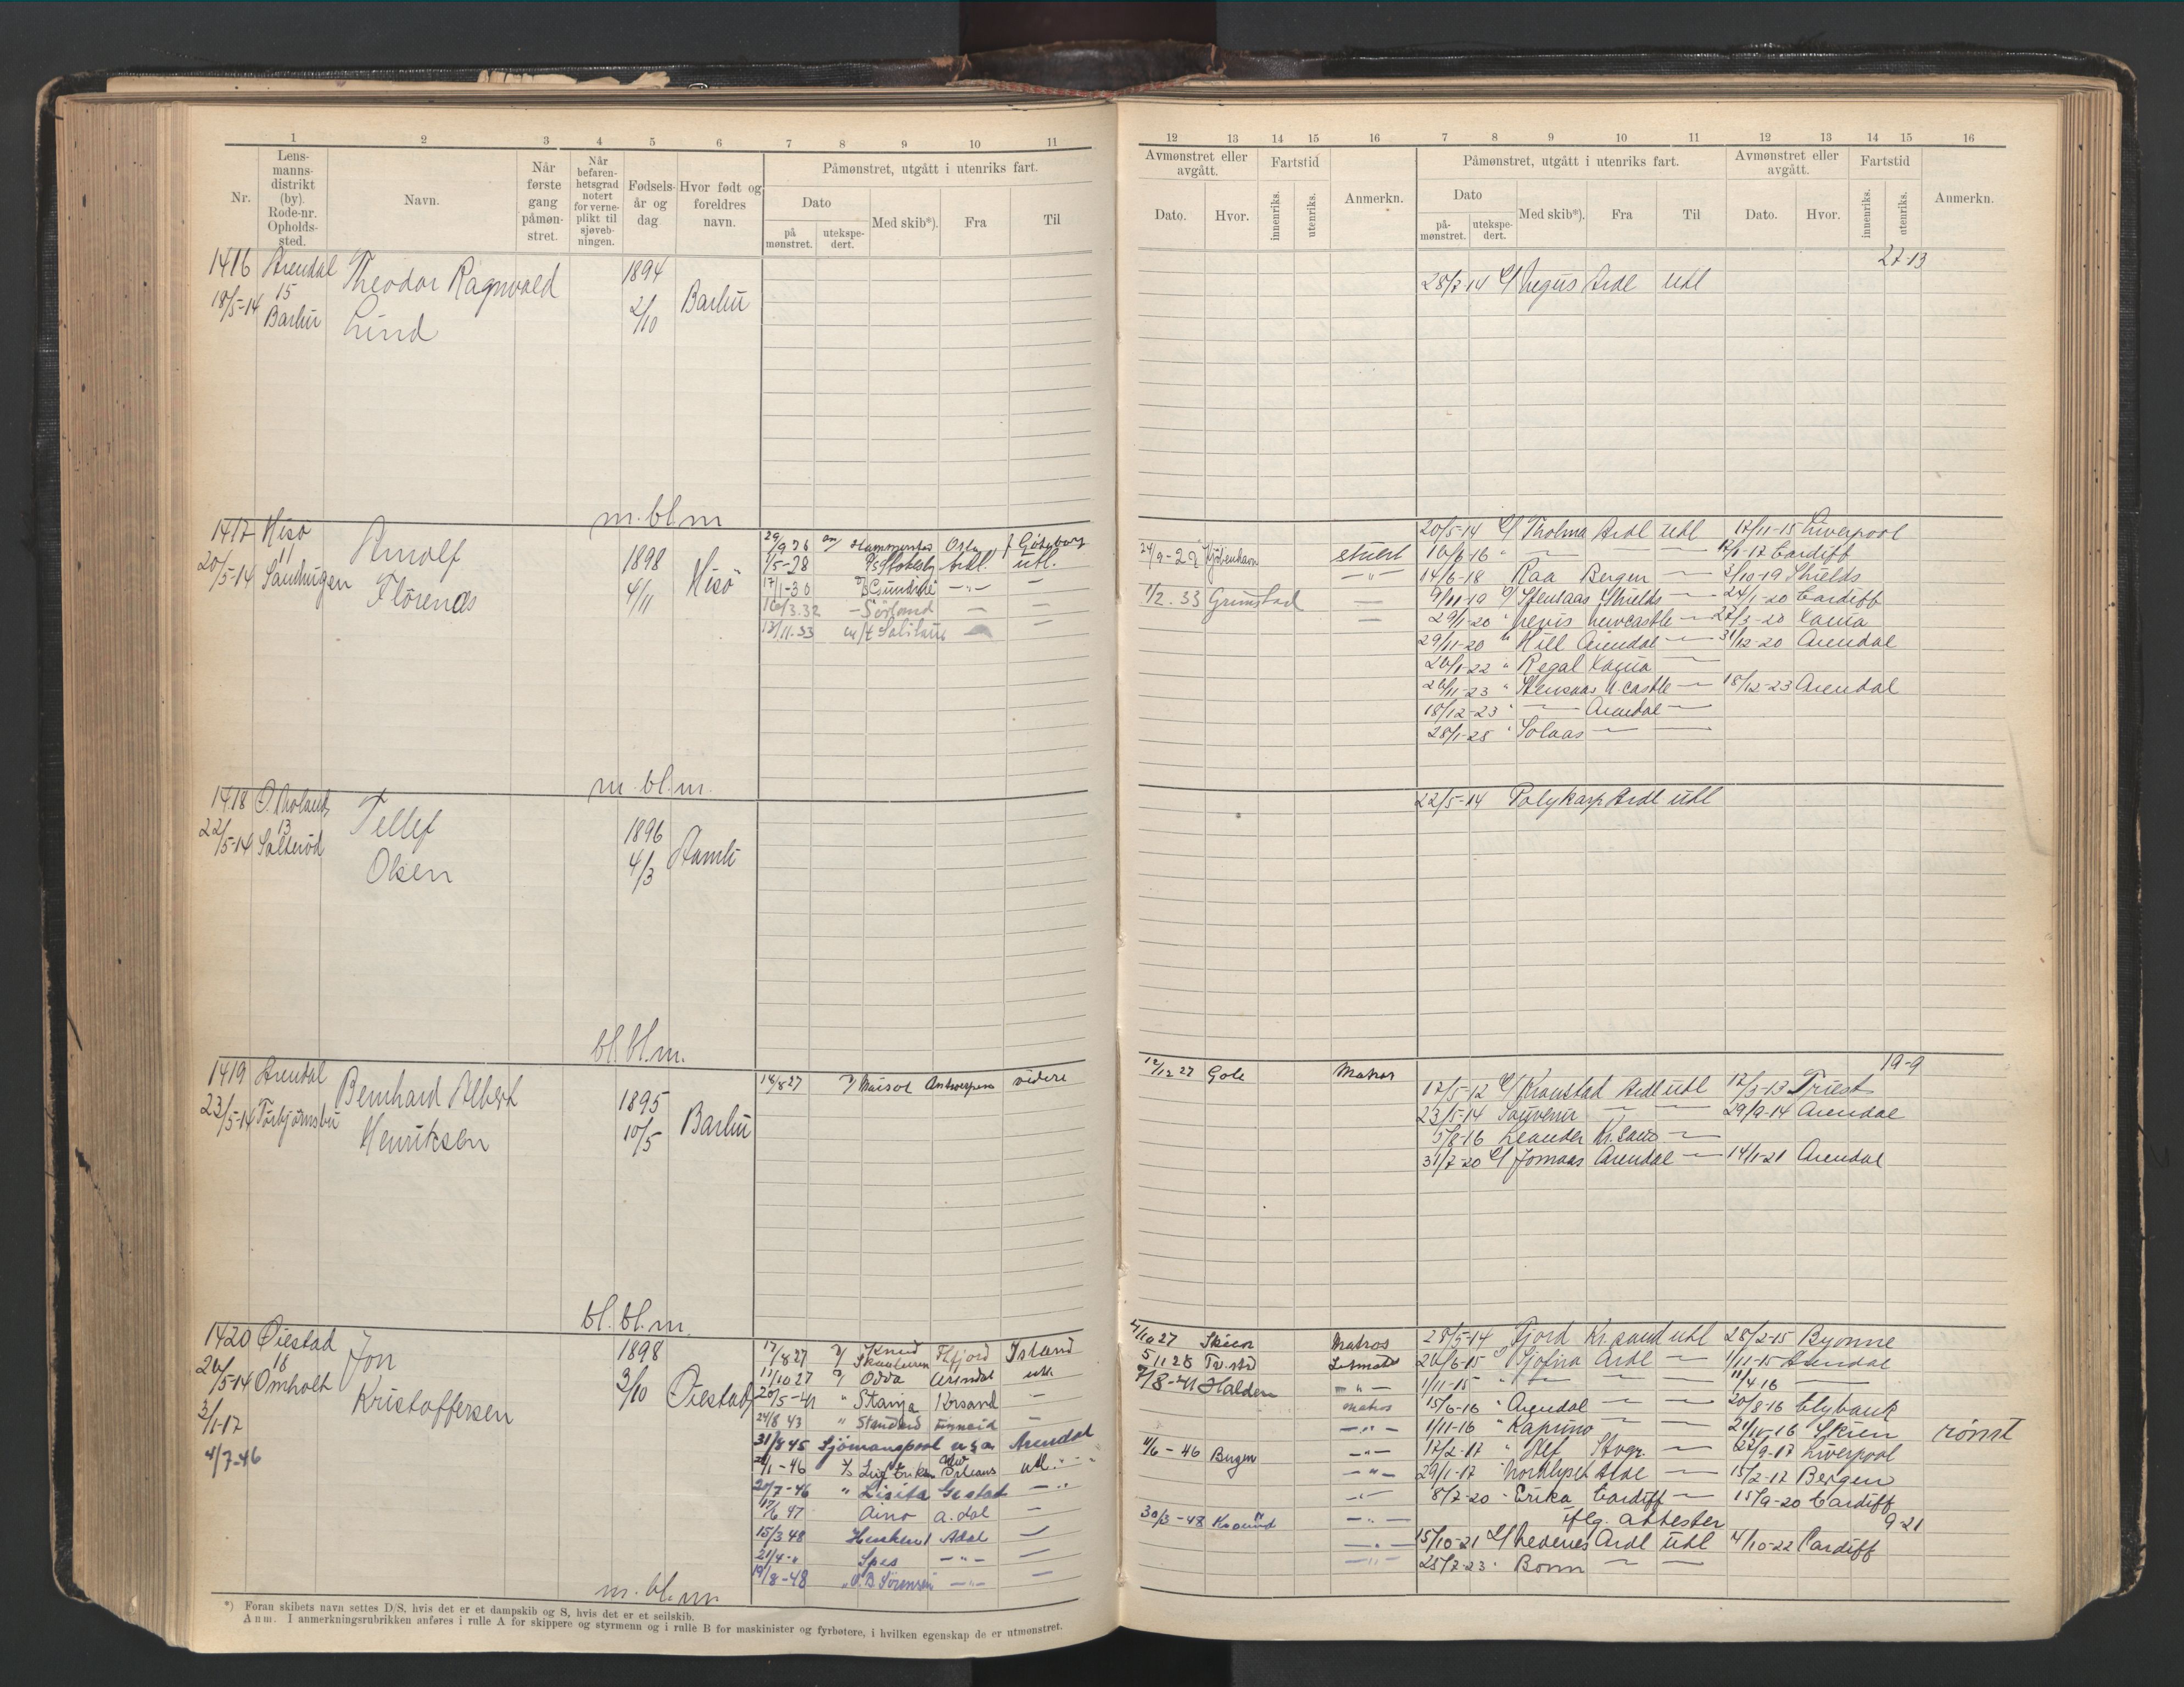 1 2 3 4 5 6 7 8 9 10 11
Nr.
Lens-
manns-
distrikt
(by).
Rode-nr.
Opholds-
sted.
Navn.
Når
første
gang
påmøn-
stret.
Når
befaren-
hetsgrad
notert
for verne-
plikt til
sjøveb-
ningen.
Fødsels-
år og
dag
Hvor født og
foreldres
navn.
Påmønstret, utgått i utenriks fart.
Dato
på
mønstret.
utekspe-
dert.
Med skib*).
Fra
Til
1416 Arendal Theodor Ragnvald 1894
18/5-14 15 Barbu Lind 2/10 Barbu
m. bl. m
1417 Hisö Arnolf 1898 Hisö
20/5-14 11 Sandvigen Flörenæs 4/11
29/9 26 Oslo f Göteborg
1/5-28 utl.
17/1-30 —"—
16/3.32 — Sörland — —
13/11.33 m/t Solitaire —
m. bl. m.
1418 Ø. Moland Tellef 1896
22/5-14 13 Salteröd Olsen 4/3
bl. bl. m.
1419 Arendal Bernhard Albert 1895
23/5-14 Torbjörnsbu Henriksen 10/5 Barbu
18/8 27 Antwerpen videre
bl. bl. m.
1420 Øiestad Jon 1898
26/5-14 18 Omholt Kristoffersen 3/10 Øiestad
3/1-17
4/7-46
17/8 27 Knud Skaaluren Island
11/10 27 Odda Arendal utl.
20/5-41 " Stanja Krsand —
24/8 43 " Standard —
31/8 45 Sjömanspool u s a Arendal
/1-46 Leif Eriksen New Orleans utl.
20/7-46 " Lisita —"
17/6 47 Aino A.dal —
15/3 48 Adal —
21/4-" Spes —"— —
19/8-48 " O.B Sörensen —"— —
m. bl. m
*) Foran skibets navn settes D/S, hvis det er et dampskib og S, hvis det er et seilskib.
Anm. I anmerkningsrubrikken anføres i rulle A for skippere og styrmenn og i rulle B for maskinister og fyrbøtere, i hvilken egenskap de er utmønstret.
12 13 14 15 16 7 8 9 10 11 12 13 14 15 16
Avmønstret eller
avgått.
Dato. Hvor.
Fartstid
innenriks.
utenriks.
Anmerkn.
Påmønstret, utgått i utenriks fart.
Dato
på-
mønstret.
utekspe-
dert.
Med skib*).
Fra
Til
Avmønstret eller
avgått.
Dato. Hvor.
Fartstid
innenriks.
utenriks.
Anmerkn.
27-13
28/7-14 Negus Ardl utl
20/5-14 Tholma Ardl utl 17/11-15 Liverpool
24/9-29 Kjöbenhavn stuert 16/6-16 " — — — /1-17 Cardiff
—"— 14/6-18 Raa Bergen — 3/10-19 Shields
1/2.33 Grimstad — 9/11-19 Stensaas Shields — 24/1-20 Cardiff
— 29/1-20 " Nevis Newcastle — 27/3-20 Xania
29/11-20 " Hill Arendal — 31/12-20 Arendal
26/1-22 " Regal Xania —
26/11-23 " Stensaas N.castle — 18/12-23 Arendal
18/12-23 " — Arendal —
28/1-25 " Solaas — —
22/5-14 Polykarp Ardl utl
12/12 27 Gole Matros 19-9
17/5-12 Kronstad Ardl utl 17/3-13 Triest
23/5-14 Souvenir — — 29/9-14 Arendal
5/8-16 Leander Kr.sand —
31/7-20 Jomaas Arendal — 14/1-21 Arendal
4/10 27 Skien Matros 28/5-14 Fjord Kr.sand utl 28/2-15 Byonne
5 11 28 Tv.str Letmatr 26/6-15 " Sjofna Ardl — 1/11-15 Arendal
7/8-41 Halden —"— 1/11-15 " — " — 11/4 16 —
matros 15/6-16 " Arendal — 20/8-16 Clybank
—"— 1/11-16 " Kapino — — 24/11-16 Skien römt
4/6-46 Bergen —"— 17/2-17 " Alf Stvgr — 22/9-17 Liverpool
—"— 29/1-17 Nordlyset Ardl — 15/2-17 Bergen
—"— 8/7-20 " Erika Cardiff — 15/9-20 Cardiff
30/3-48 —"— iflg. attester 9-21
—"— 15/10-21 Nedenes Ardl utl 4/10-22 Cardiff
—"— 25/7-23 " Bonn — —